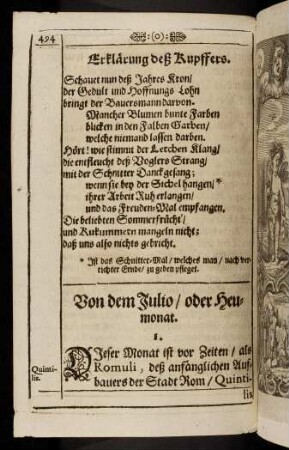 494
Erklärung deß Kupffers.
Schauet nun deß Jahres Kron/
der Gedult und Hoffnungs Lohn
bringt der Bauersmann darvon.
Mancher Blumen bunte Farben
blicken in den Falben Garben/
welche niemand lassen darben.
Hört! wie stimmt der Lerchen Klang/
die entfleucht deß Voglers Strang/
mit der Schnitter Danckgesang;
wenn sie bey der Sichel hangen/*
ihrer Arbeit Ruh erlangen/
und das Freuden-Mal empfangen.
Die beliebten Sommerfrücht/
und Kukummern mangeln nicht;
daß uns also nichts gebricht.
* Ist das Schnitter-Mal/ welches man/ nach ver-
richter Ernde/ zu geben pfleget.
Von dem Julio/ oder Heu-
monat.
1.
DIeser Monat ist vor Zeiten/ als
Quinti-
lis.
Romuli, deß anfänglichen Auf-
bauers der Stadt Rom/ Quinti-
lis